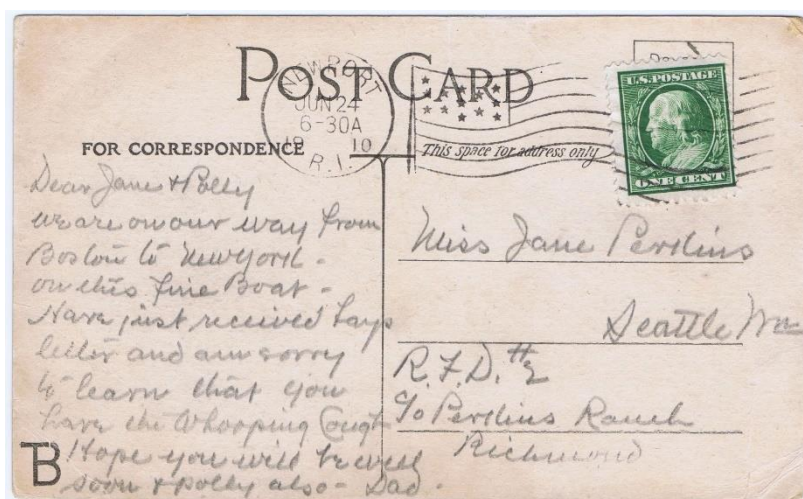 POST CARD
NEWPORT
JUN 24
6-30A
19 10
R.I.
U.S. POSTAGE
ONE CENT
FOR CORRESPONDENCE
This space for address only
Dear Jane & Polly
we are on our way from
Boston to New York -
on this fine Boat -
Have just received
letter and am sorry
to learn that you
have the Whooping Cough
Hope you will be well
soon & polly also - Dad.
B
Miss Jane Perkins
Seattle Wn
R.F.D. #2
c/o Perkins Ranch
Richmond